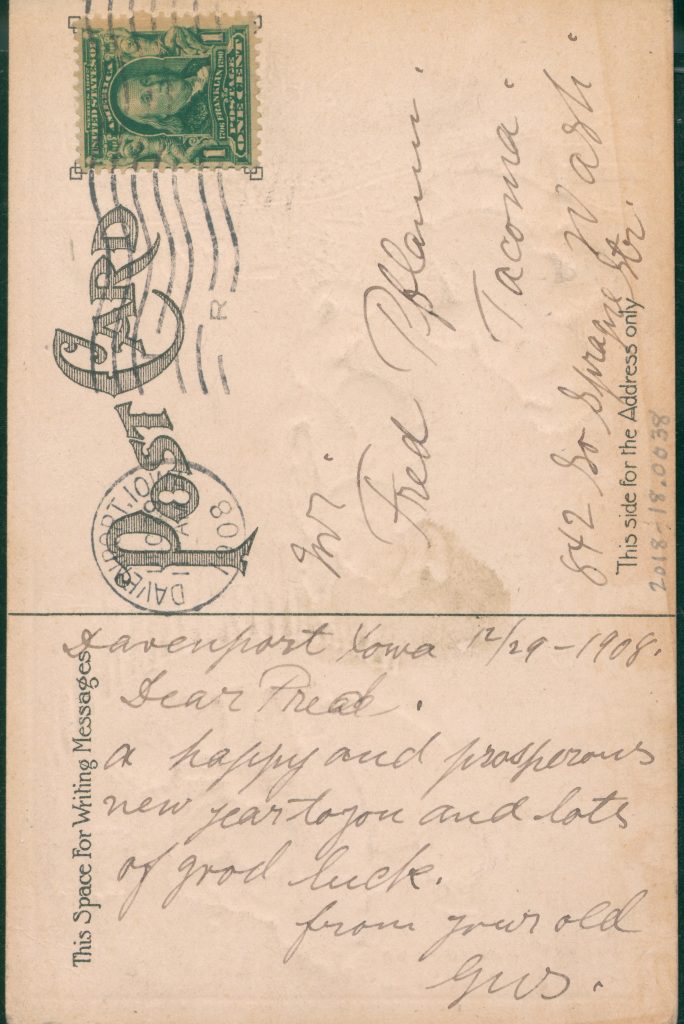 POST CARD
SERIES 1902
UNITED STATES OF
AMERICA
1706 FRANKLIN 1790
POSTAGE
1 ONE CENT 1
DAVENPORT, IOWA
1908
R
Mr.
Fred Pflaum.
Tacoma.
Wash.
842 So Sprague Str.
This side for the Address only
2018-18.0038
This Space For Writing Messages
Davenport Iowa 12/29-1908.
Dear Fred.
a happy and prosperous
new year to you and lots
of good luck.
from your old
Gus.